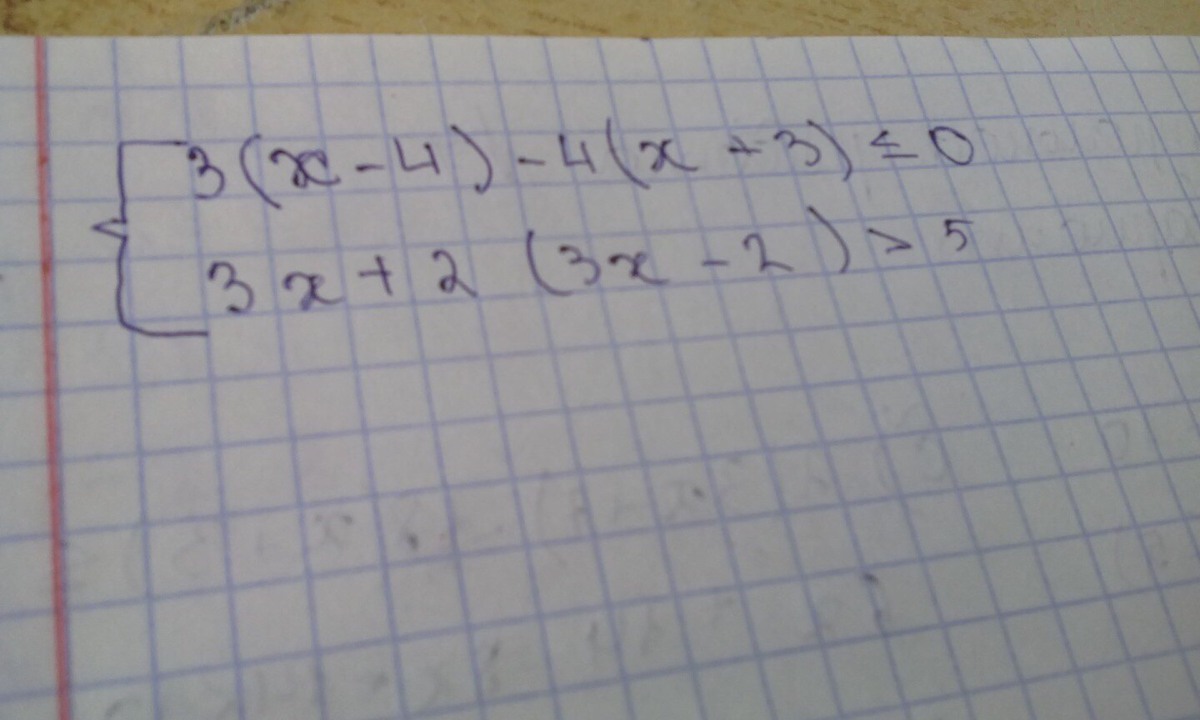 3(x-4)-4(x+3)≤0
3x+2(3x-2)>5